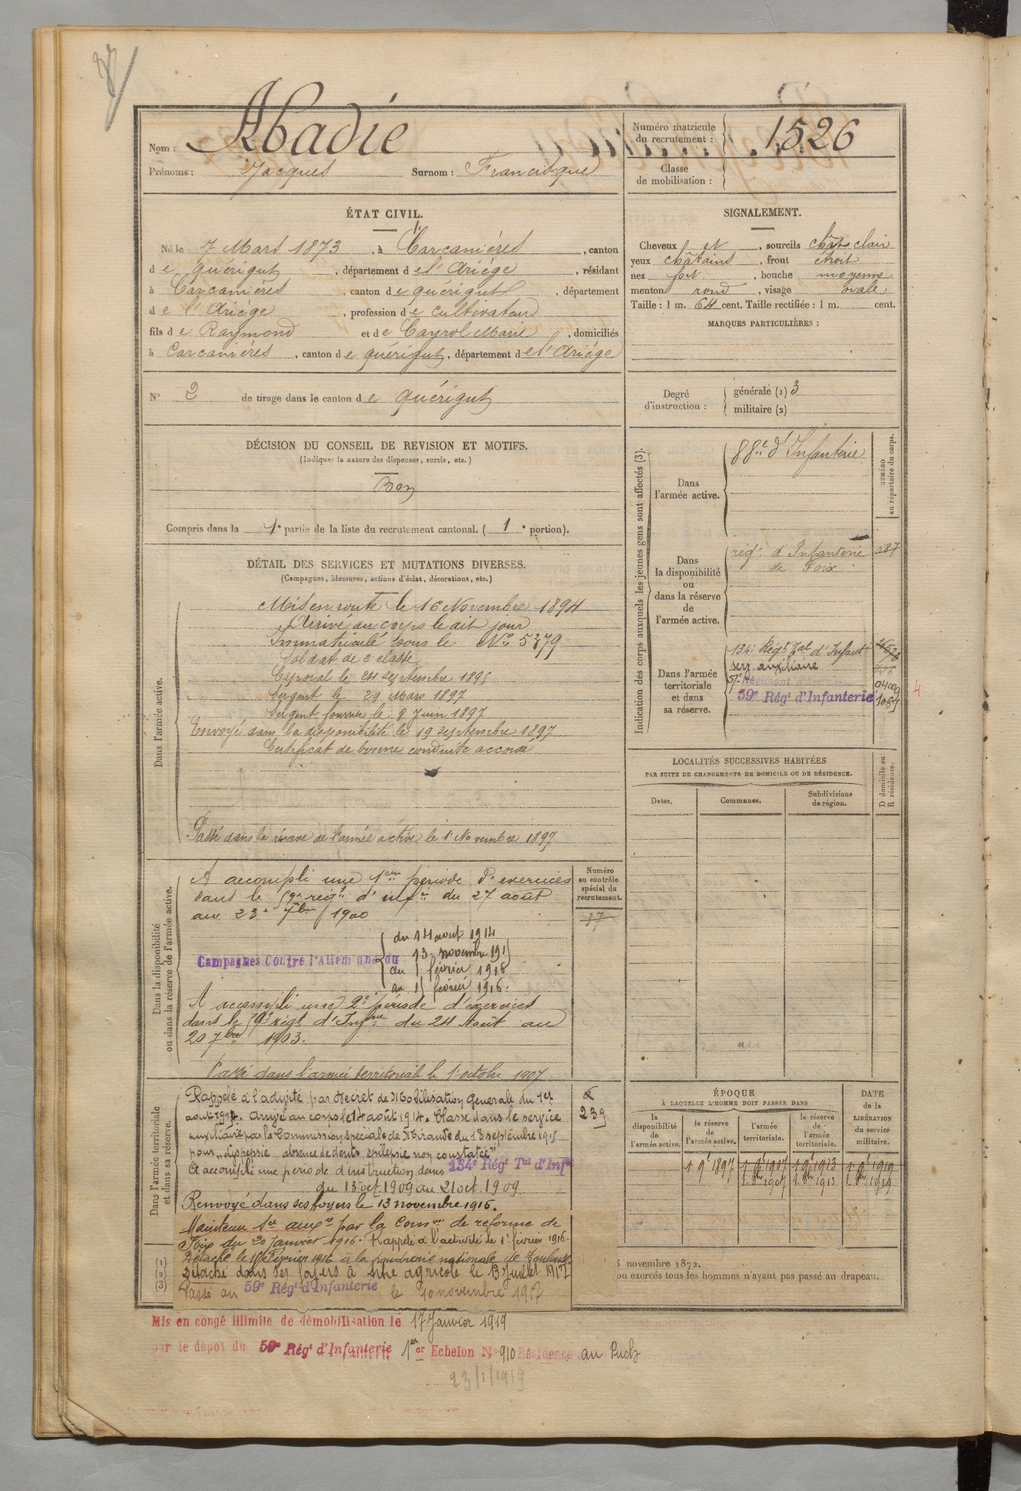 Nom : Abadie
Prénoms : Jacques Surnom : Francisque
Numéro matricule du recrutement : 1526
Classe de mobilisation :
ÉTAT CIVIL.
Né le 7 Mars 1873, à Carcanières, canton
de Quérigut, département de l'Ariège, résidant
à Carcanières, canton de Quérigut, département
de l'Ariège, profession de cultivateur
fils de Raymond et de Cayrol Marie, domiciliés
à Carcanières, canton de Quérigut, département de l'Ariège
N° 2 de tirage dans le canton de Quérigut
SIGNALEMENT.
Cheveux et, sourcils chat. clair
yeux châtains, front étroit
nez fort, bouche moyenne
menton rond, visage ovale
Taille : 1 m. 64 cent. Taille rectifiée : 1 m. cent.
MARQUES PARTICULIÈRES :
Degré d'instruction : générale (1) 3
militaire (2)
DÉCISION DU CONSEIL DE REVISION ET MOTIFS.
(Indiquer la nature des dispenses, sursis, etc.)
Bon
Compris dans la 1e partie de la liste du recrutement cantonal. (1e portion).
DÉTAIL DES SERVICES ET MUTATIONS DIVERSES.
(Campagnes, blessures, actions d'éclat, décorations, etc.)
Dans l'armée active.
Mis en route le 16 Novembre 1894
Arrivé au corps le dit jour
Immatriculé sous le No 5379
Soldat de 2e classe
Caporal le 24 Septembre 1895
Sergent le 29 Mars 1897
Sergent fourrier le 8 Juin 1897
Envoyé dans la disponibilité le 19 septembre 1897
Certificat de bonne conduite accordé
Passé dans la réserve de l'armée active le 1 Novembre 1897
Dans la disponibilité ou dans la réserve de l'armée active.
A accompli une 1ère période d'exercices
dans le 59e régt d'infie du 27 août
au 23 7bre 1900
Numéro au contrôle spécial du recrutement.
37
Campagnes contre l'Allemagne du
du 14 aout 1914
13 novembre 1915
du 1 février 1916
A accompli une 2e période d'exercices
dans le 59e régt d'Infie du 24 Août au
20 7bre 1903.
Passé dans l'armée territoriale le 1 octobre 1907
Dans l'armée territoriale et dans sa réserve.
Rappelé à l'activité par Décret de Mobilisation Générale du 1er
août 1914. Arrivé au corps le 14 août 1914. Classé dans le service
auxiliaire par la Commission spéciale de Mirande du 18 septembre 1915
pour "dyspepsie absence de dents, épilepsie non constatée"
A accompli une période d'instruction dans 134e Régt Tal d'Infie
du 13 oct 1909 au 21 oct. 1909
Renvoyé dans ses foyers le 13 novembre 1915.
239
Maintenu Sce auxre par la Comon de réforme de
Foix du 20 Janvier 1916. Rappelé à l'activité le 1 février 1916.
Détaché le 1er Février 1916 à la poudrerie nationale de Toulouse
Détaché dans ses foyers à titre agricole le 13 Juillet 1917
Passé au 59e Régt d'Infanterie le 10 novembre 1917
Mis en congé illimité de démobilisation le 17 Janvier 1919
par le dépôt du 59e Régt d'Infanterie 1er Echelon N° 910 Résidence au Puch
23/1/1919
Indication des corps auxquels les jeunes gens sont affectés (3).
NUMÉRO au répertoire du corps.
Dans l'armée active.
88e d'Infanterie
Dans la disponibilité ou dans la réserve de l'armée active.
régt d'Infanterie de Foix
Dans l'armée territoriale et dans sa réserve.
134e Régt Tal d'Infant
serv auxiliaire
59e Régt d'Infanterie
4
LOCALITÉS SUCCESSIVES HABITÉES
PAR SUITE DE CHANGEMENTS DE DOMICILE OU DE RÉSIDENCE.
D domicile ou R résidence.
Dates. Communes. Subdivisions de région.
ÉPOQUE
À LAQUELLE L'HOMME DOIT PASSER DANS
la disponibilité de l'armée active.
la réserve de l'armée active.
l'armée territoriale.
la réserve de l'armée territoriale.
DATE de la LIBÉRATION du service militaire.
1.9e 1897 1.9e 1907 1.9e 1913 1.9e 1919
1.8bre 1907 1.8bre 1913 1.8bre 1919
(1)
(2)
(3)
novembre 1872.
on exercés tous les hommes n'ayant pas passé au drapeau.